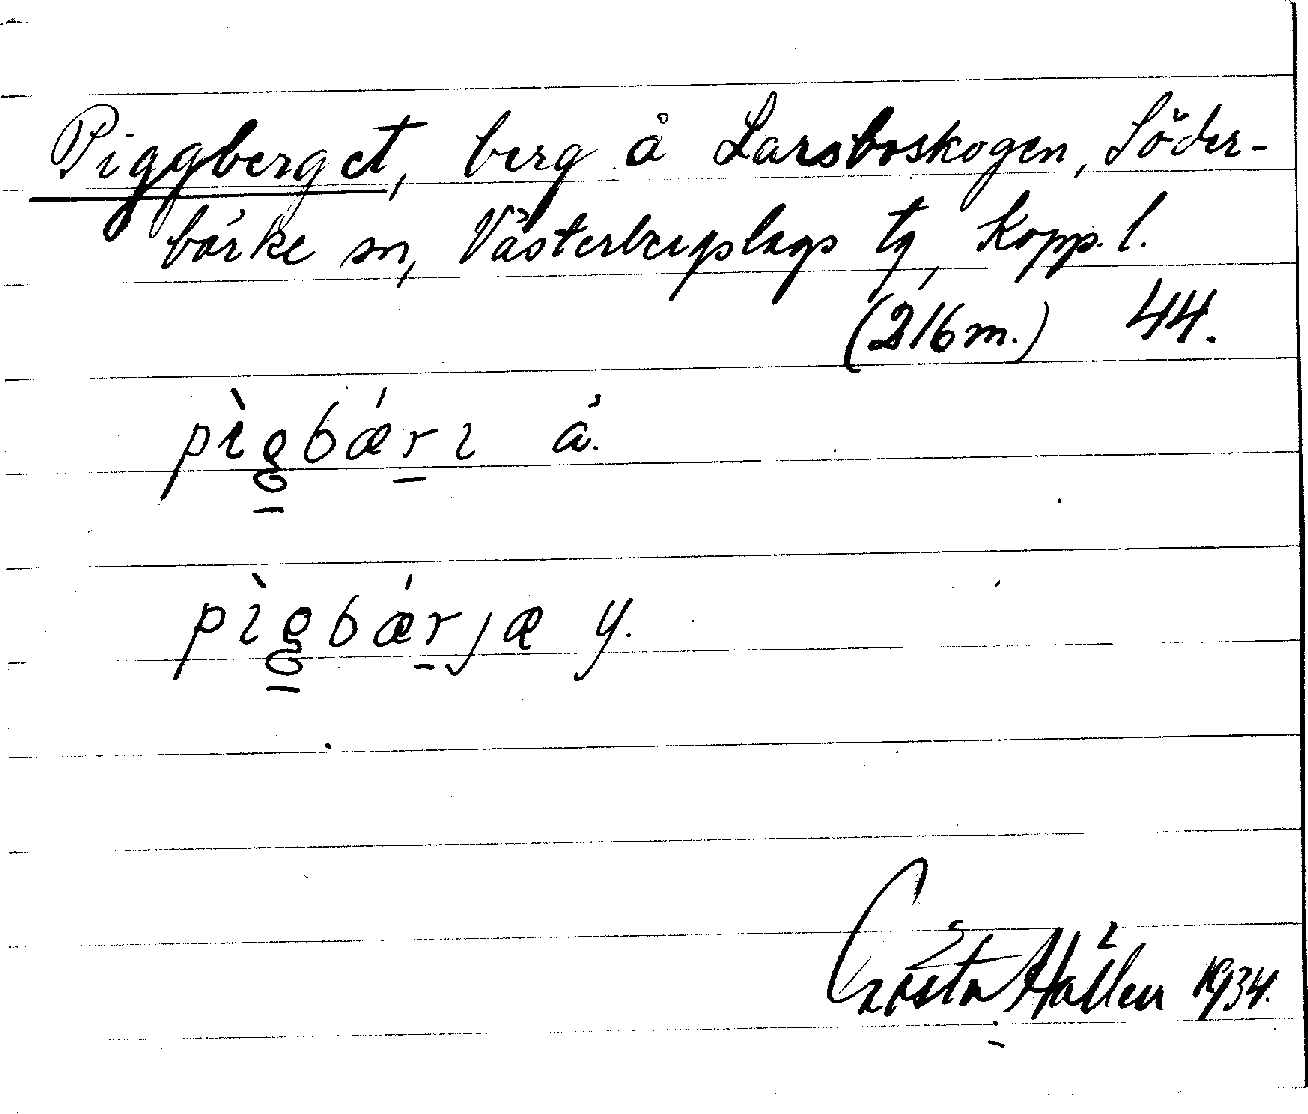 Piggberget, berg å Larsboskogen, Söder-
bärke sn, Västerbergslags tg, Kopp. l.
(216 m.) 44.
pìgbǽrı å.
pìgbǽrjæ y.
Gösta Hallen 1934.